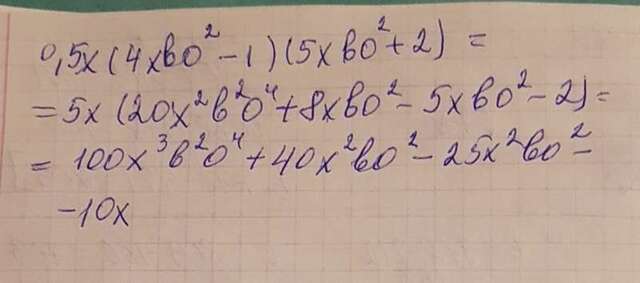 0,5x(4xbo²-1)(5xbo²+2)=
=5x(20x²b²o⁴+8xbo²-5xbo²-2)=
=100x³b²o⁴+40x²bo²-25x²bo²-
-10x